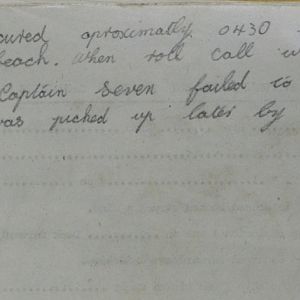 oured aproximatly 0430
beach. When roll call w
Captain Seven failed to
was picked up later by